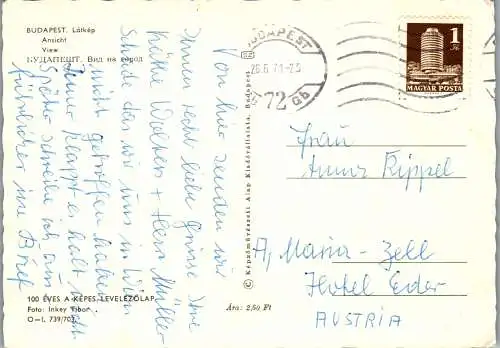 BUDAPEST. Látkép
Ansicht
View
БУДАПЕШТ. Вид на город
Von hier senden wir
Ihnen recht liebe Grüsse Ihre
Käthe Walter + Herr Müller
Schade das wir uns in Wien
nicht getroffen haben
immer klappt es halt nicht.
Später schreibe ich Ihnen
ausführlicher im Brief
100 ÉVES A KÉPES LEVELEZŐLAP
Foto: Inkey Tibor
O-I. 739/70
Ára: 2,50 Ft
(C) Képzőművészeti Alap Kiadóvállalata, Budapest
BUDAPEST
72
1 Ft
MAGYAR POSTA
Frau
Anny Rippel
A, Maria-Zell
Hotel Eder
AUSTRIA